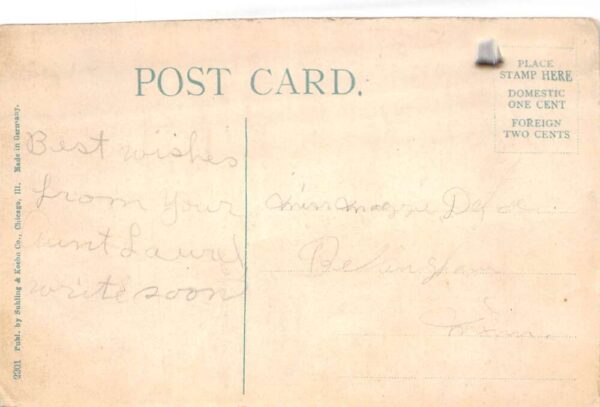 POST CARD.
PLACE
STAMP HERE
DOMESTIC
ONE CENT
FOREIGN
TWO CENTS
2201 Publ. by Suhling & Koehn Co., Chicago, Ill. Made in Germany.
Best wishes
from your
aunt Laurel
write soon
Miss Maggie